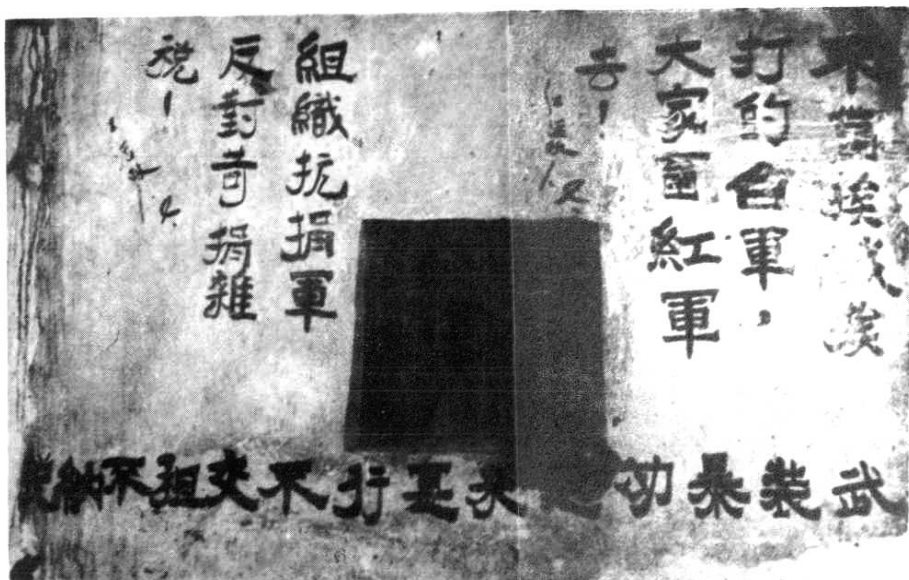 不當挨挨
打的白軍，
大家當紅軍
去！
組織抗捐軍
反對苛捐雜
稅！
武裝暴动來行不交租不納